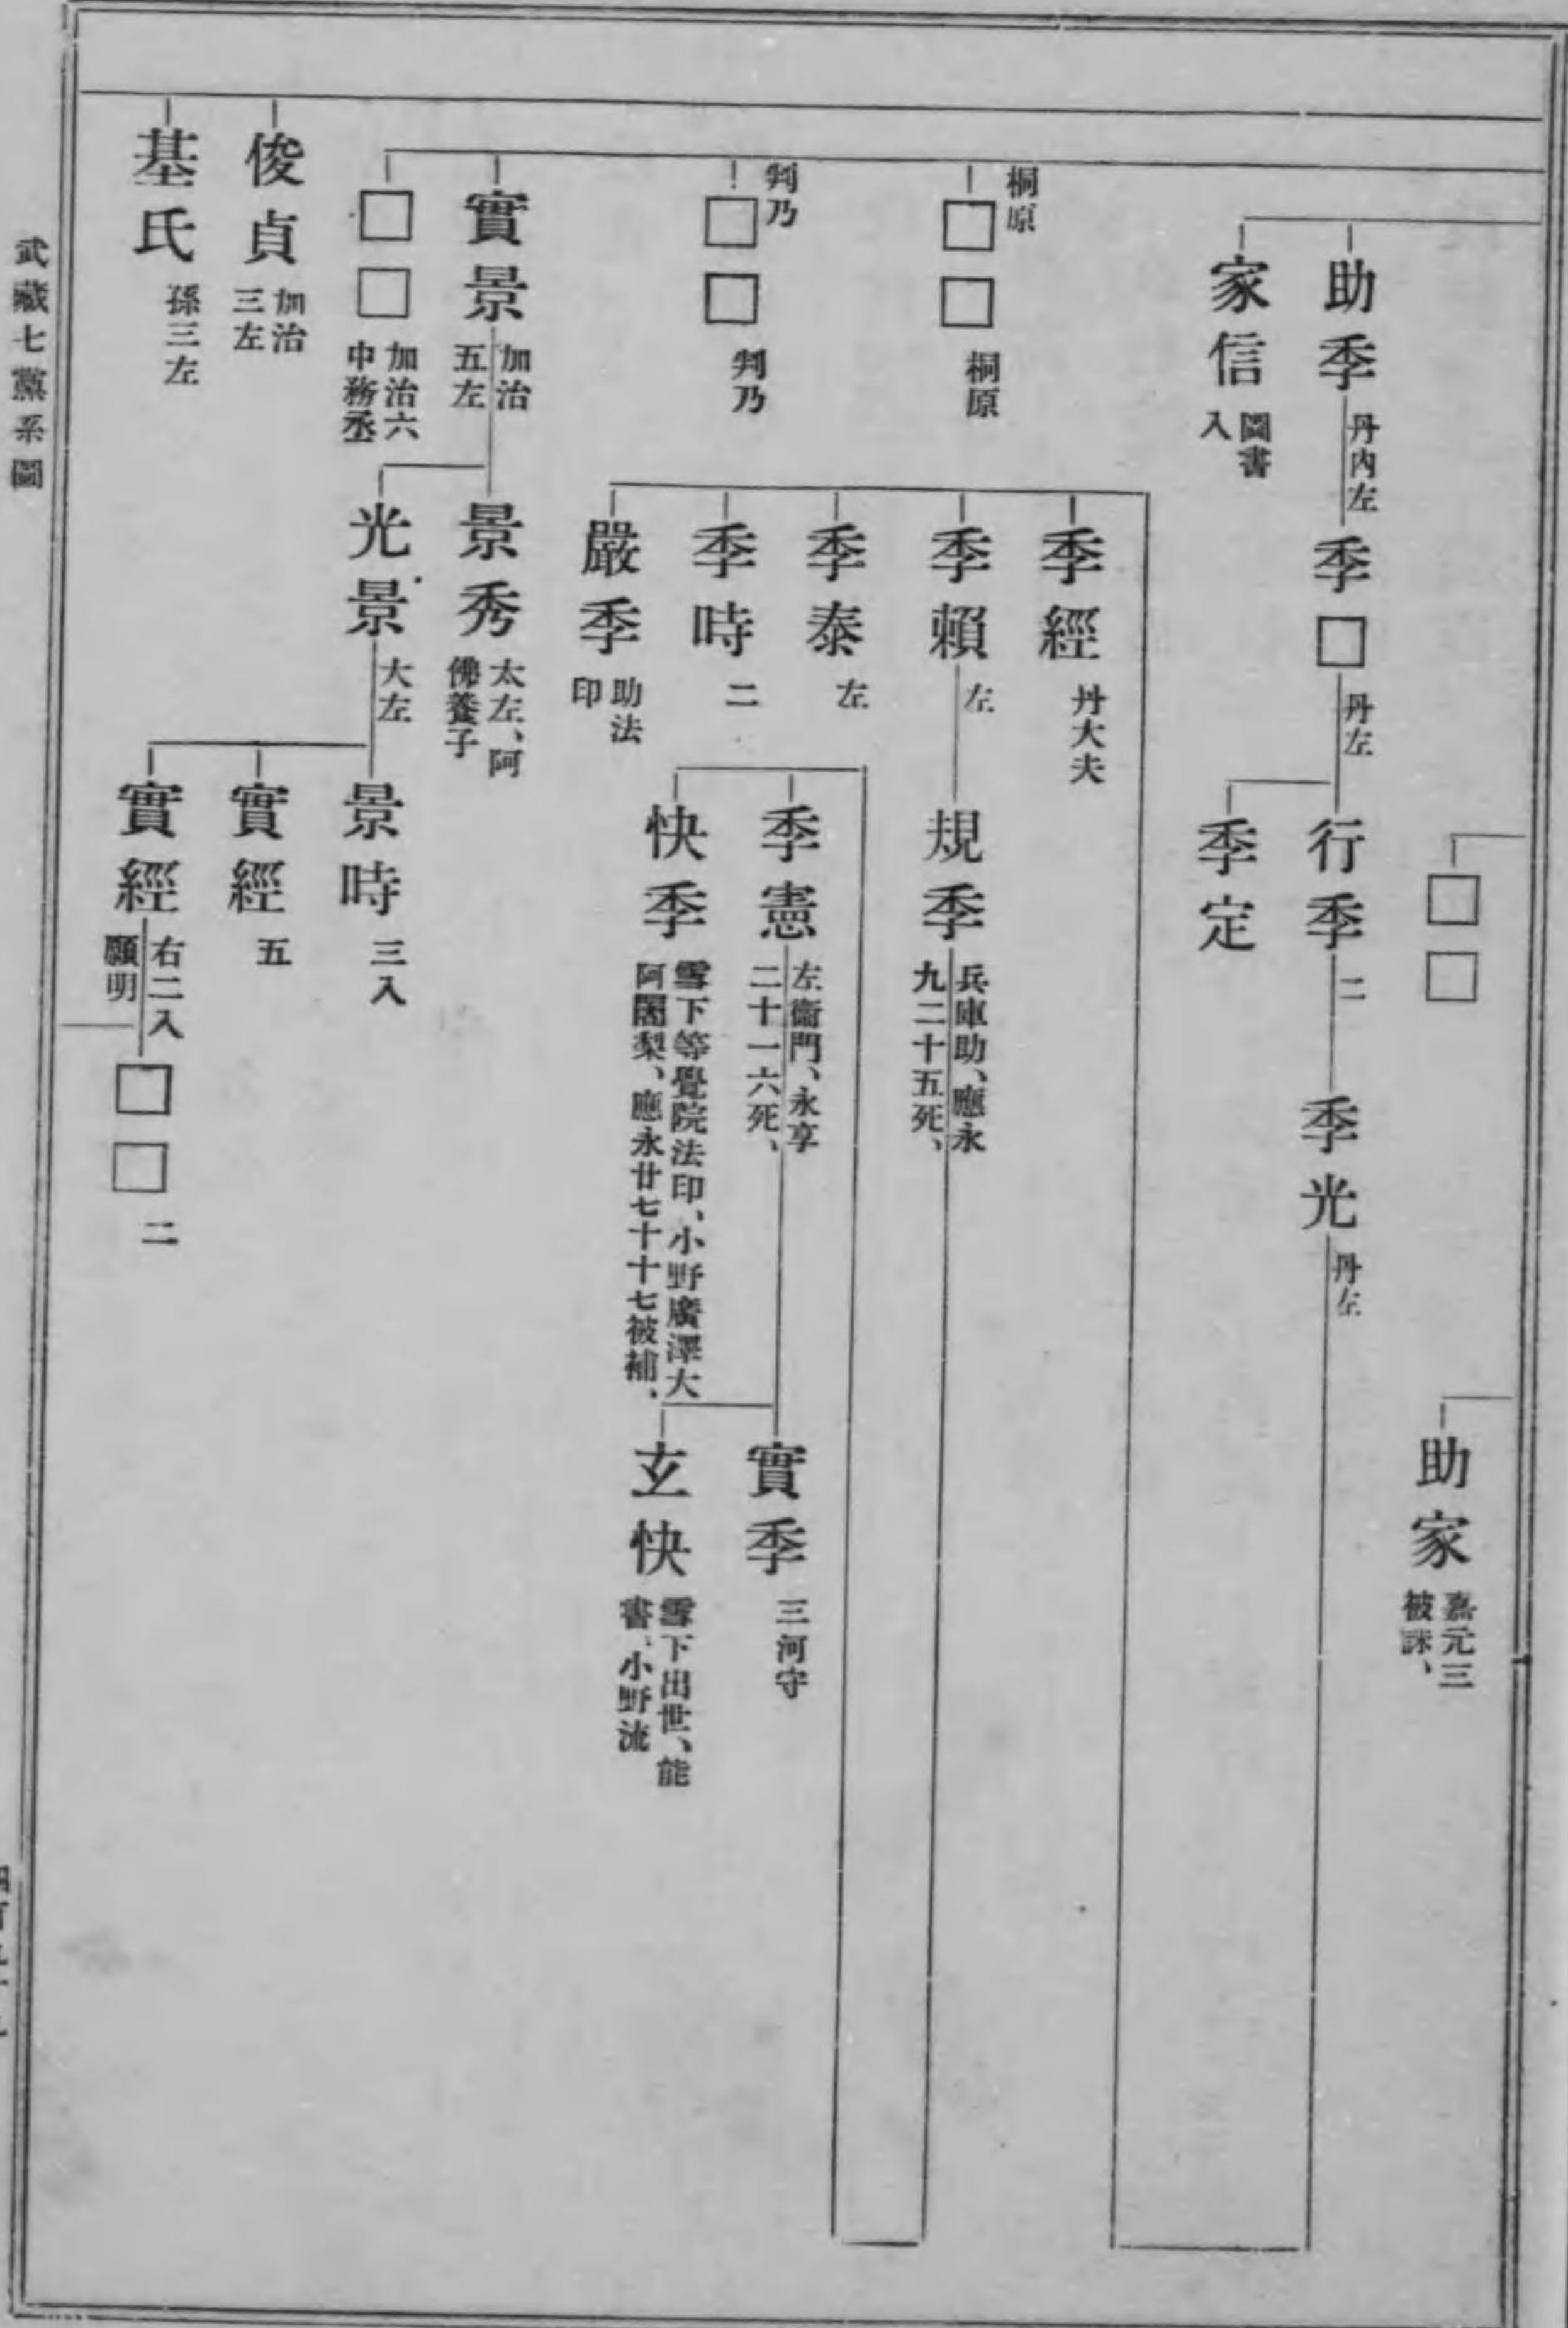 □□
助家 嘉元三
被誅、
助季 丹內左
季□ 丹左
行季 二
季光 丹左
季定
家信 圖書
入
桐原
□□ 桐原
判乃
□□ 判乃
季經 丹大夫
季賴 左
規季 兵庫助、應永
九二十五死、
季泰 左
季時 二
嚴季 助法
印
季憲 左衞門、永享
二十一六死、
實季 三河守
快季 雪下等覺院法印、小野廣澤大
阿闍梨、應永廿七十十七被補、
玄快 雪下出世、能
書、小野流
實景 加治
五左
景秀 太左、阿
佛養子
光景 大左
景時 三入
實經 五
實經 右二入
願明
□□ 二
□□ 加治六
中務丞
俊貞 加治
三左
基氏 孫三左
武藏七黨系圖